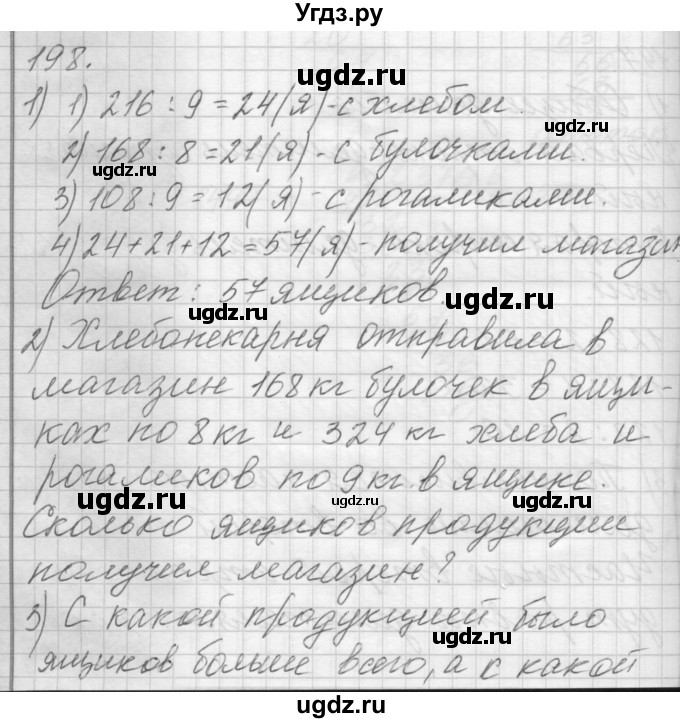 Угдз.ру
198.
1) 1) 216 : 9 = 24(я)-с хлебом.
2) 168 : 8 = 21(я) - с булочками.
3) 108 : 9 = 12(я) - с рогаликами.
4) 24+21+12 = 57(я) - получил магазин
Ответ: 57 ящиков.
2) Хлебопекарня отправила в
магазин 168 кг булочек в ящи-
ках по 8 кг и 324 кг хлеба и
рогаликов по 9 кг в ящике.
Сколько ящиков продукции
получил магазин?
3) С какой продукцией было
ящиков больше всего, а с какой
ugdz.ru
ugdz.ru
ugdz.ru
ugdz.ru
ugdz.ru
ugdz.ru
ugdz.ru
ugdz.ru
ugdz.ru
ugdz.ru
ugdz.ru
ugdz.ru